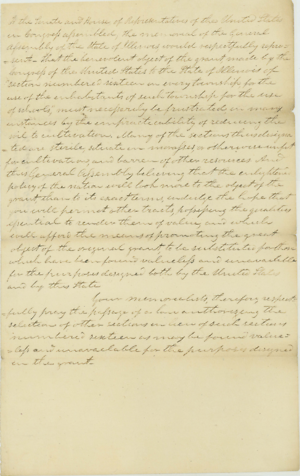 To the Senate and House of Representatives of the United States
in Congress assembled, the memorial of the General
Assembly of the State of Illinois would respectfully repre-
sent. That the benevolent object of the grant made by the
Congress of the United States to the State of Illinois of
section numbered sixteen in every township for the
use of the inhabitants of such township for the use
of schools, must necessarily be frustrated in many
instances by the impracticability of reducing the
soil to cultivation. Many of the sections thus designa-
ted are sterile, others or otherwise unfit
for cultivation, and barren of other resources. And
this General Assembly believing that the enlightened
policy of the nation will look more to the object of the
grant than to its exact terms, indulge the hope that
you will permit other tracts possessing the qualities
essential to render them of value and which
will afford the means of promoting the great
object of the original grant to be substituted for those
which have been found valueless and unavailable
for the purposes designed both by the United States
and by this State
Your memorialists, therefore respect-
fully pray the passage of a law authorizing the
selection of other sections in lieu of such sections
numbered sixteen as may be found value-
less and unavailable for the purposes designed
in the grant.